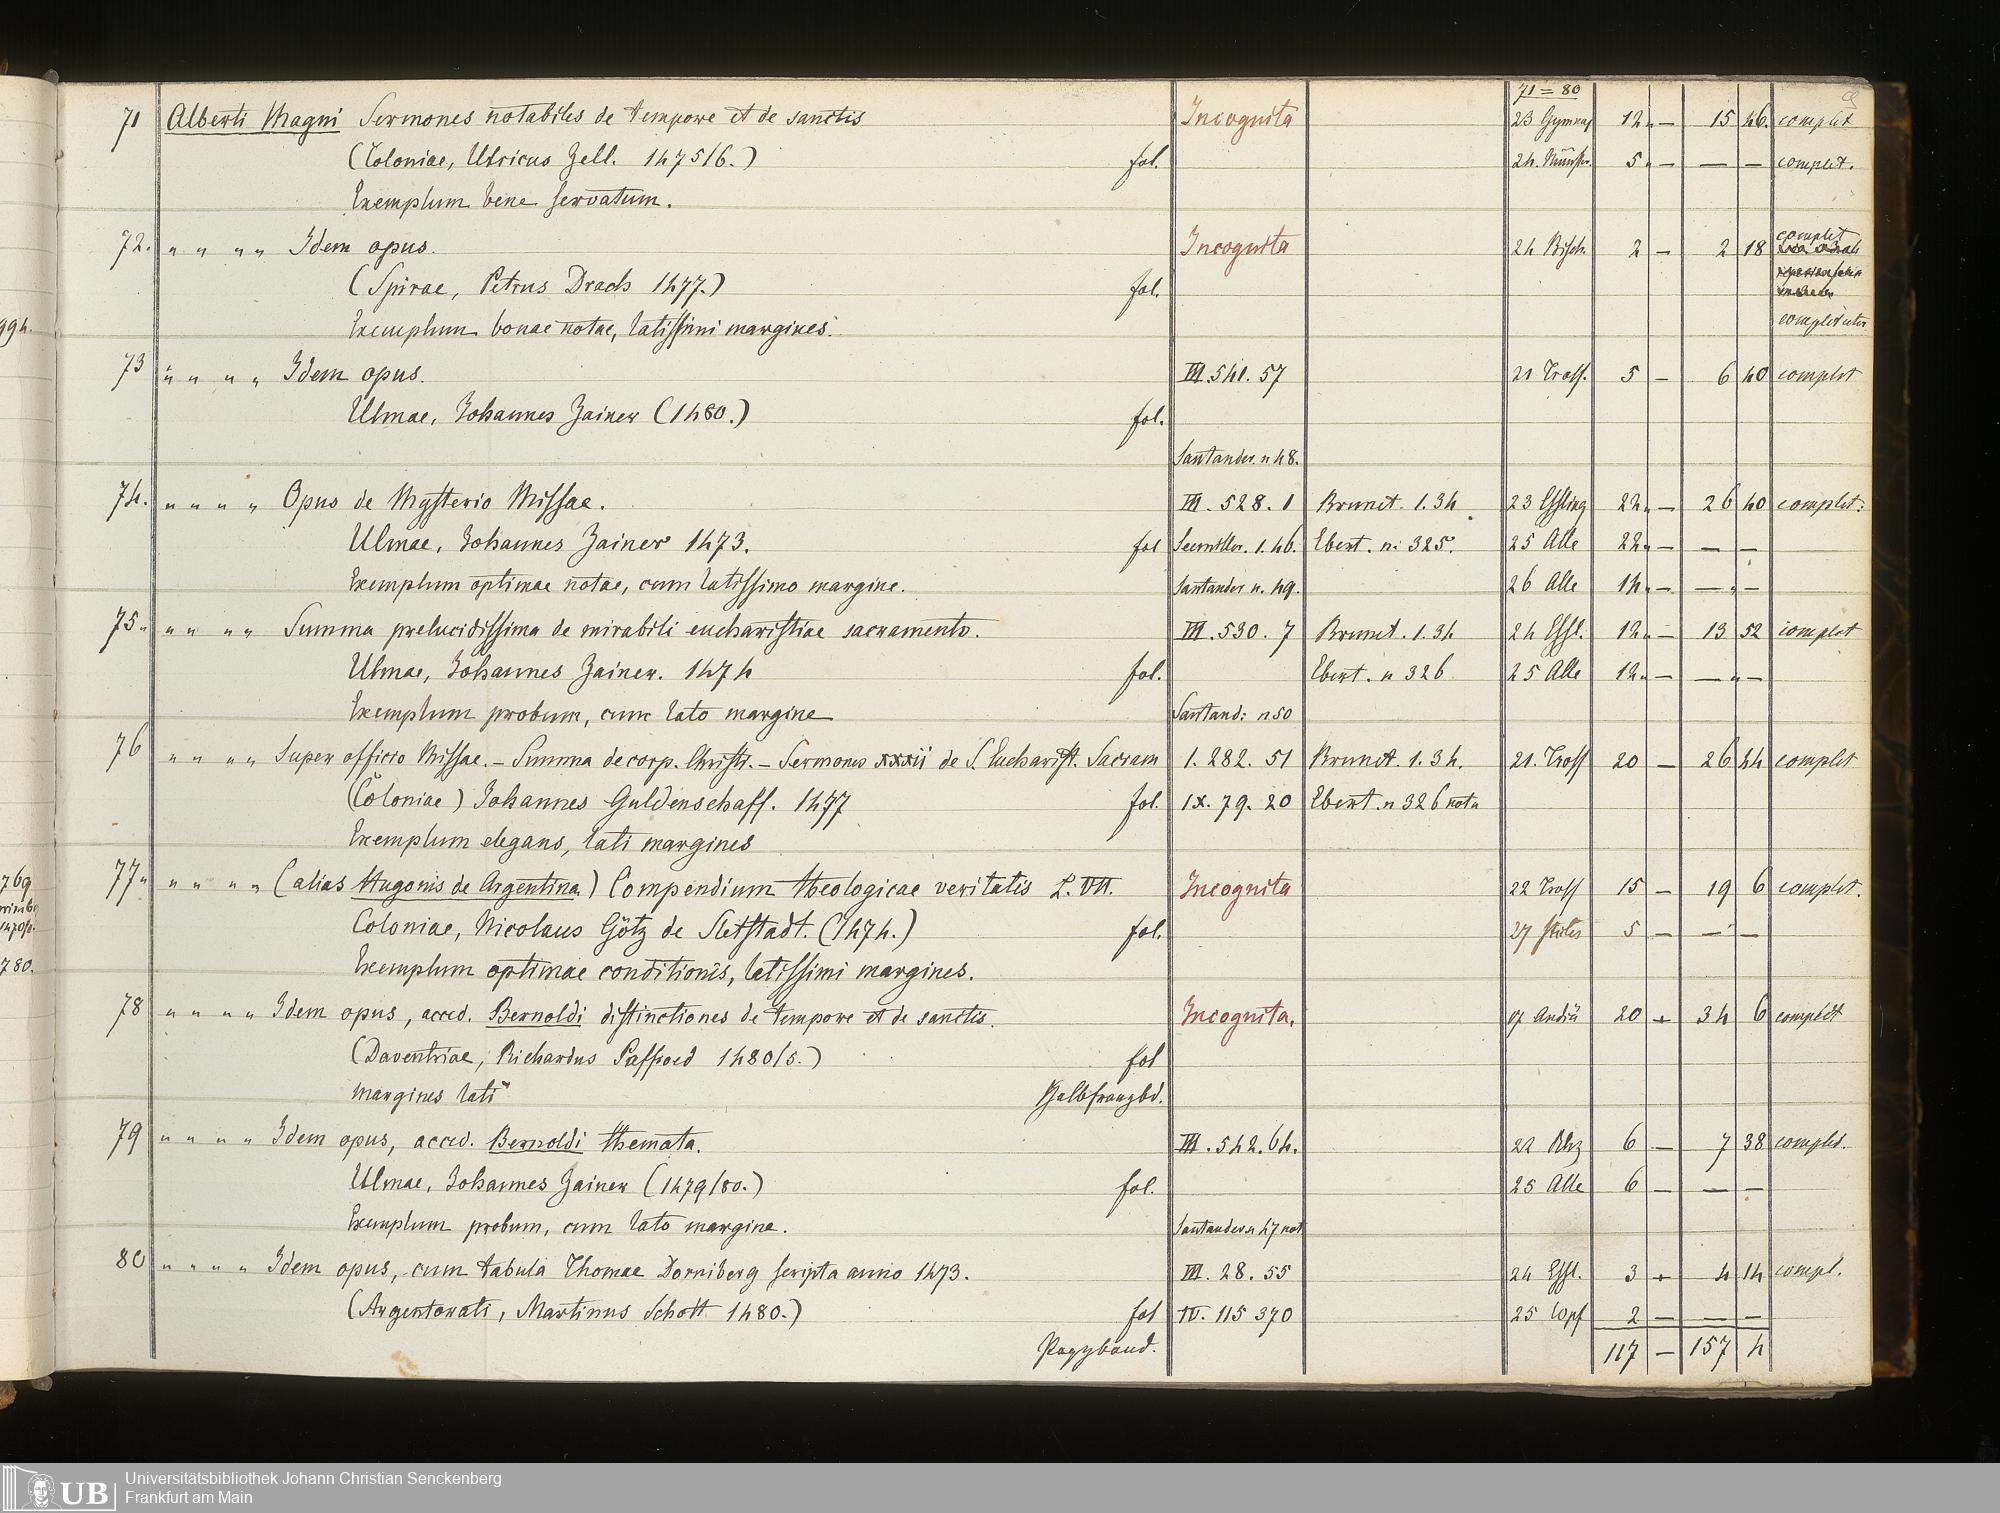 71 = 80
71 Alberti Magni Sermones notabiles de tempore et de sanctis Incognita 23 Gymnas 12 „ — 15 46. complet
(Coloniae, Ulricus Zell. 1475/6.) fol. 24. Münster. 5 „ — — — complet.
Exemplum bene servatum.
72. „ „ „ „ Idem opus. Incognita 24 Bisch. 2 — 2 18 complet
(Spirae, Petrus Drach 1477.) fol.
994. Exemplum bonae notae, latissimi margines.
73 „ „ „ „ Idem opus. III. 541. 57 21 Tross. 5 — 6 40 complet
Ulmae, Johannes Zainer (1480.) fol.
Santander. n 48.
74. „ „ „ „ Opus de Mysterio Missae. III. 528. 1 Brunet. 1. 34 23 Essling 22 „ — 26 40 complet.
Ulmae, Johannes Zainer 1473. fol Seemiller. 1. 46. Ebert. n. 325. 25 Alle 22 „ — — —
Exemplum optimae notae, cum latissimo margine. Santander n. 49. 26 Alle 14 „ — — „ —
75 „ „ „ „ „ Summa prelucidissima de mirabili eucharistiae sacramento. III. 530. 7 Brunet. 1. 34 24 Essl. 12 „ — 13 52 complet
Ulmae, Johannes Zainer. 1474 fol. Ebert. n 326 25 Alle 12 „ — — „ —
Exemplum probum, cum lato margine Santand: n 50
76 „ „ „ „ Super officio Missae. — Summa de corp. Christi. — Sermones xxxii de S. Eucharist. Sacram 1. 282. 51 Brunet. 1. 34. 21. Tross 20 — 26 44 complet
(Coloniae) Johannes Guldenschaff. 1477 fol. IX. 79. 20 Ebert. n 326 nota
Exemplum elegans, lati margines
77 „ „ „ „ „ (alias Hugonis de Argentina) Compendium theologicae veritatis L. VII. Incognita 22 Tross 15 — 19 6 complet.
Coloniae, Nicolaus Götz de Sletstadt. (1474.) fol. 27 5 — — —
780. Exemplum optimae conditionis, latissimi margines.
78 „ „ „ „ Idem opus, acced. Bernoldi distinctiones de tempore et de sanctis. Incognita. 20 + 34 6 complet
(Daventriae, Richardus Paffroed 1480/5.) fol
margines lati Halbfranzbd.
79 „ „ „ „ Idem opus, acced. Bernoldi themata. III. 542. 64. 22 6 — 7 38 complet.
Ulmae, Johannes Zainer (1479/80.) fol. 25 Alle 6 — — —
Exemplum probum, cum lato margine. Santander n 47 not
80 „ „ „ „ Idem opus, cum tabula Thomae Dorniberg scripta anno 1473. III. 28. 55 24 Essl. 3 + 4 14 compl.
(Argentorati, Martinus Schott 1480.) fol IV. 115 370 25 2 — — —
Pappband. 117 — 157 4
UB Universitätsbibliothek Johann Christian Senckenberg
Frankfurt am Main